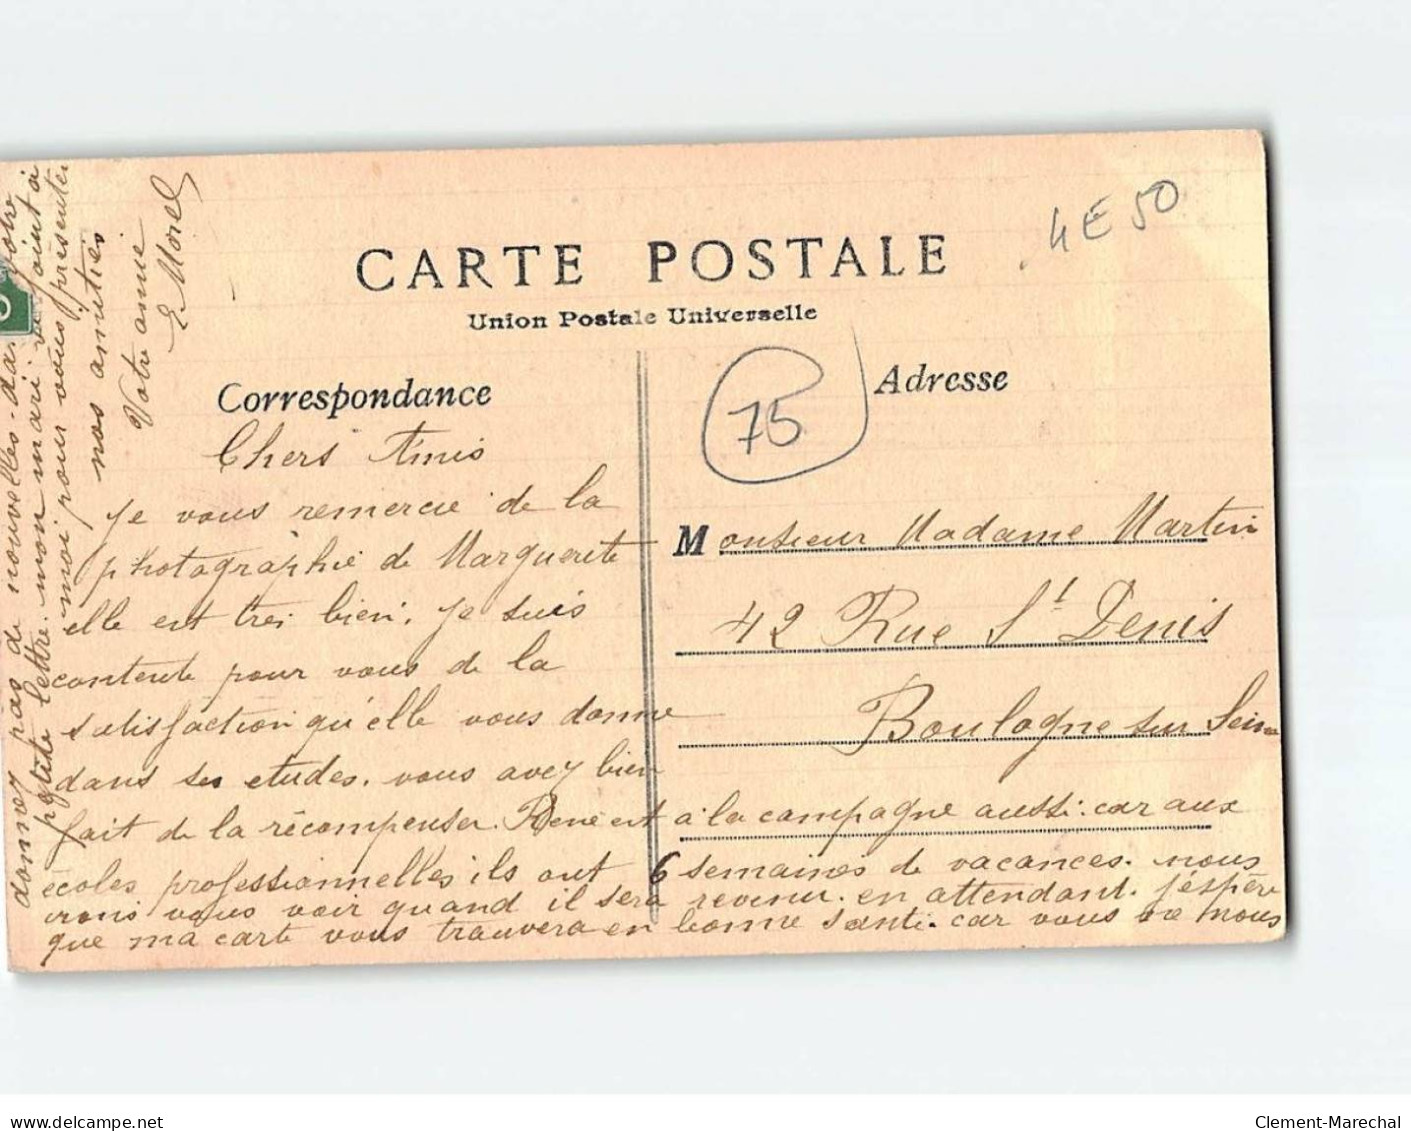 CARTE POSTALE
Union Postale Universelle
4E50
75
Correspondance
Adresse
Chers Amis
Je vous remercie de la
photographie de Marguerite
elle est très bien. Je suis
contente pour vous de la
satisfaction qu'elle vous donne
dans ses etudes. vous avez bien
fait de la récompenser. René est à la campagne aussi. car aux
écoles professionnelles ils ont 6 semaines de vacances. nous
irons vous voir quand il sera revenu. en attendant. J'éspère
que ma carte vous trouvera en bonne santé. car vous ne nous
donnez pas de nouvelles. dans votre
petite lettre. mon mari se joint à
moi pour vous présenter
nos amitiés
Votre amie
E. Morel
Monsieur Madame Martin
42 Rue St Denis
Boulogne sur Seine
www.delcampe.net
Clement-Marechal